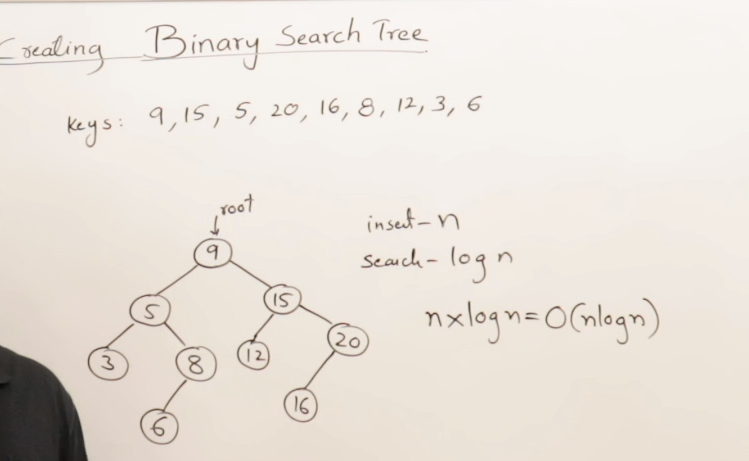 Creating Binary Search Tree
keys: 9, 15, 5, 20, 16, 8, 12, 3, 6
root
9
5 15
3 8 12 20
6 16
insert - n
search - log n
n x log n = O(nlogn)